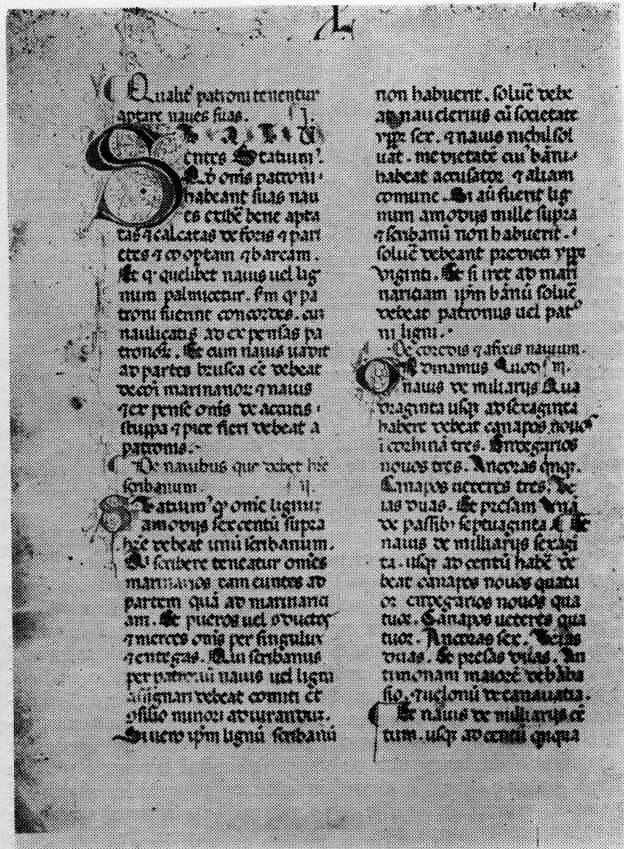 L
Qualit̄ patroni tenentur
aptare naues suas. I.
STATU
entes Statuim⁹.
Qđ om̄s patroni
habeant suas nau
es et ibē bene apta
tas ⁊ calcatas de foris ⁊ pari
etes ⁊ cooptam ⁊ barcam.
Et ꝙ quelibet nauis uel lig
num palmicetur. ꝙ pa
troni fuerint concordes. cū
naulicatis ad expensas pa
tronoꝝ. Et cum nauis uadit
ad partes brusca eē debeat
de cōi marinarioꝝ ⁊ nauis
⁊ expense om̄s de accutis
stuppa ⁊ pice fieri debeat a
patronis.
De nauibus que debēt hr̄e
scribanum. II.
Statum⁹ ꝙ om̄e lignum
a modijs sex centū supra
hr̄e debeat unū scribanum.
Qui scribere teneatur om̄es
marinarios tam euntes ad
partem quā ad marinarici
am. Et pueros uel
⁊ merces om̄s per singulum
⁊ entegas. Qui scribanus
per patronū nauis uel ligni
assignari debeat comiti et
ꝯsilio minori ad iurandum.
Si uero ip̄m lignū scribanū
non habuerit. soluē debe
at nauclerius cū societate
yꝑꝑ sex. ⁊ nauis nichil sol
uat. medietatē cui⁹ bāni
habeat accusator ⁊ aliam
comune. Si aū fuerit lig
num a modijs mille supra
⁊ scribanū non habuerit.
soluē debeant predicti yꝑꝑ
viginti. Et si iret ad mari
nariciam ip̄m bānū soluē
debeat patronus uel pat
ni ligni.
De cordis ⁊ afixis nauium.
Ordinamus Quod III.
nauis de miliarijs Qua
draginta usqꝫ ad sexaginta
habere debeat canapos nouos
tres. Endegarios
nouos tres. Ancoras qnqꝫ.
Canapos ueteres tres. Ve
las duas. Et presam unā
de passibꝫ septuaginta. Et
nauis de milliarijs sexagī
ta. usqꝫ ad centū habē de
beat canapos nouos quatu
or endegarios nouos qua
tuor. Canapos ueteres qua
tuor. Ancoras sex. Velas
duas. Et presas duas. An
timonam maiorē de bāba
sio. ⁊ uelonū de canauatia.
Et nauis de miliarijs cē
tum. usqꝫ ad centū qnqua